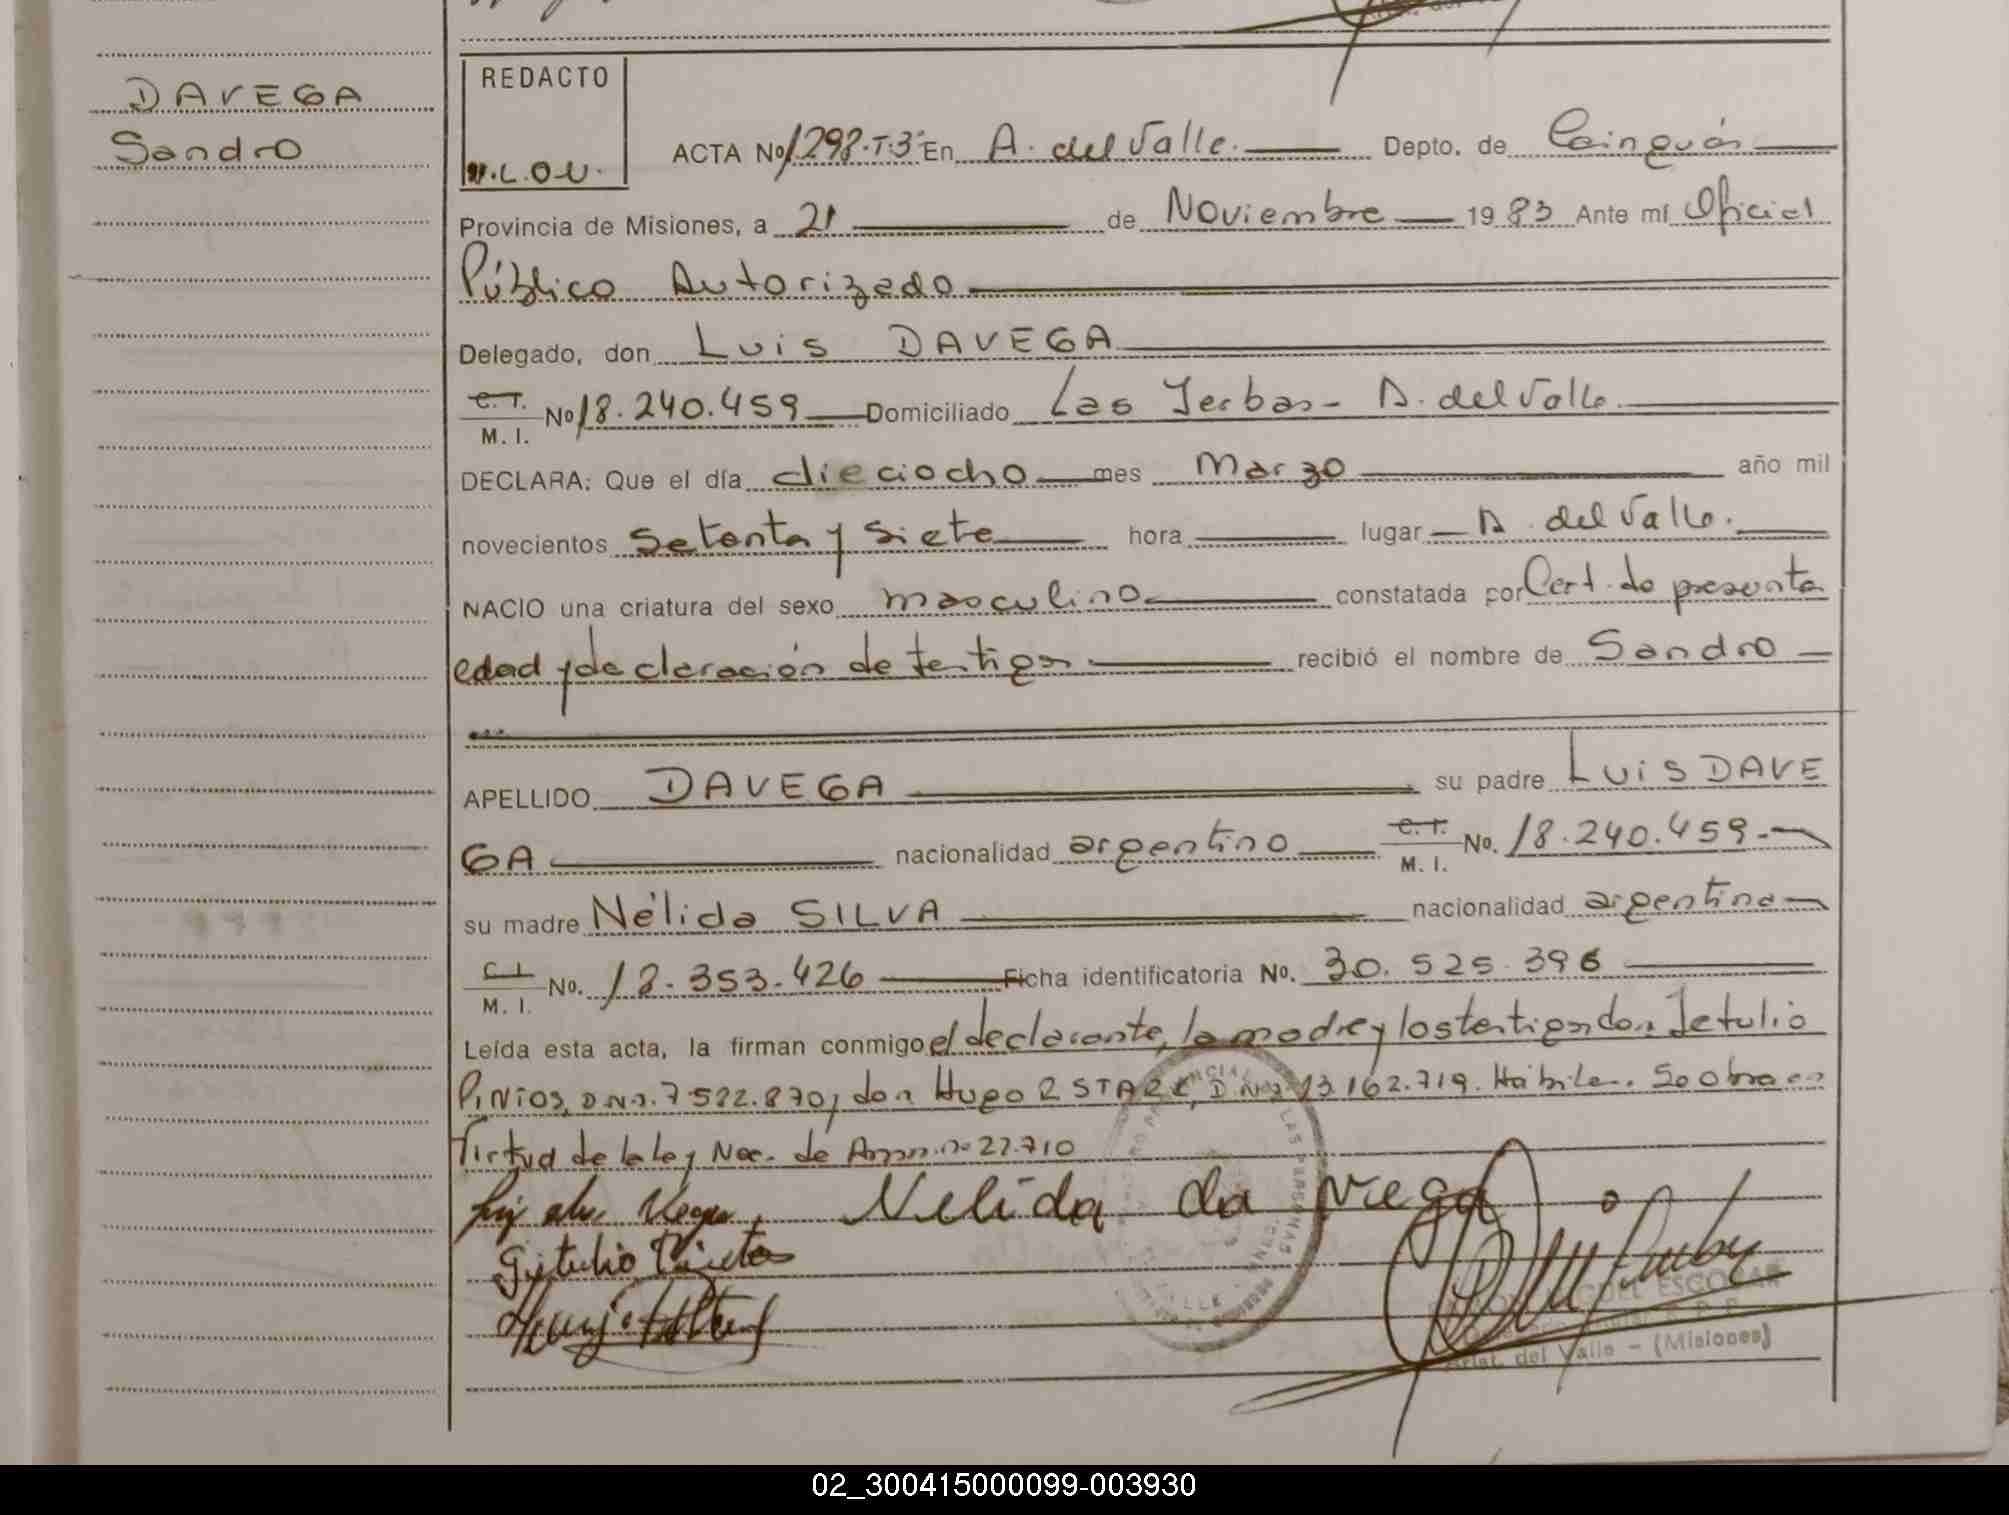 DAVEGA
Sandro
REDACTO
N.L.O.U.
ACTA No 1298-T-3º En A. del Valle. Depto. de Cainguás
Provincia de Misiones, a 21 de Noviembre 1983 Ante mí Oficial
Público Autorizado
Delegado, don Luis DAVEGA
C.I. M.I. No 18.240.459 Domiciliado Las Yerbas - A. del Valle
DECLARA: Que el día dieciocho mes Marzo año mil
novecientos setenta y siete hora lugar A. del Valle.
NACIO una criatura del sexo masculino constatada por Cert. de presunta
edad y declaración de testigos recibió el nombre de Sandro
APELLIDO DAVEGA su padre Luis DAVE
GA nacionalidad argentino C.I. M.I. No. 18.240.459.-
su madre Nélida SILVA nacionalidad argentina
C.I. M.I. No. 18.353.426 Ficha identificatoria No. 30.525.396
Leída esta acta, la firman conmigo el declarante, la madre y los testigos don Jetulio
D.N.I. 7.522.870, don Hugo R STARK, D.N.I. 13.162.719. Hábiles. Se obra en
Virtud de la Ley Nac. de Amn. nº 22.710
Nelida da vega
Getulio
ESCOBAR
Arist. del Valle - (Misiones)
02_300415000099-003930